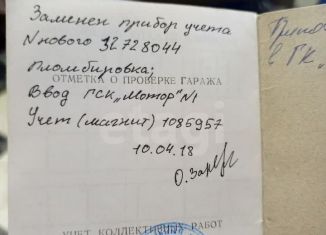 Заменен прибор учета
N нового 32728044
Пломбировка;
ОТМЕТКА О ПРОВЕРКЕ ГАРАЖА
Ввод ГСК „Мотор" N1
Учет (магнит) 1085957
10.04.18
УЧЕТ КОЛЛЕКТИВНЫХ РАБОТ
в ГК „